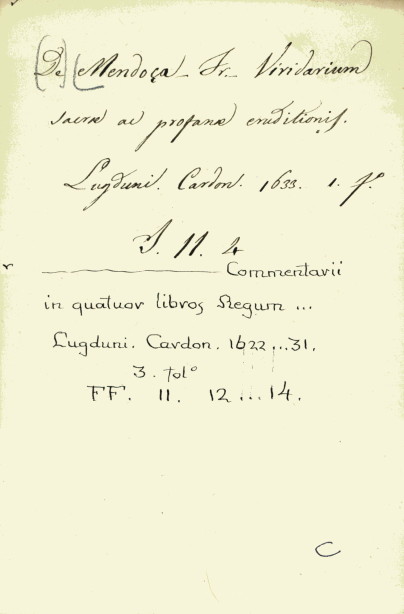 (De) (Mendoça Fr. Viridarium
sacræ ac profanæ eruditionis.
Lugduni. Cardon. 1633. 1. fº.
S. 11. 4
Commentarii
in quatuor libros Regum ...
Lugduni. Cardon. 1622...31.
3. folº
FF. 11. 12...14.
C